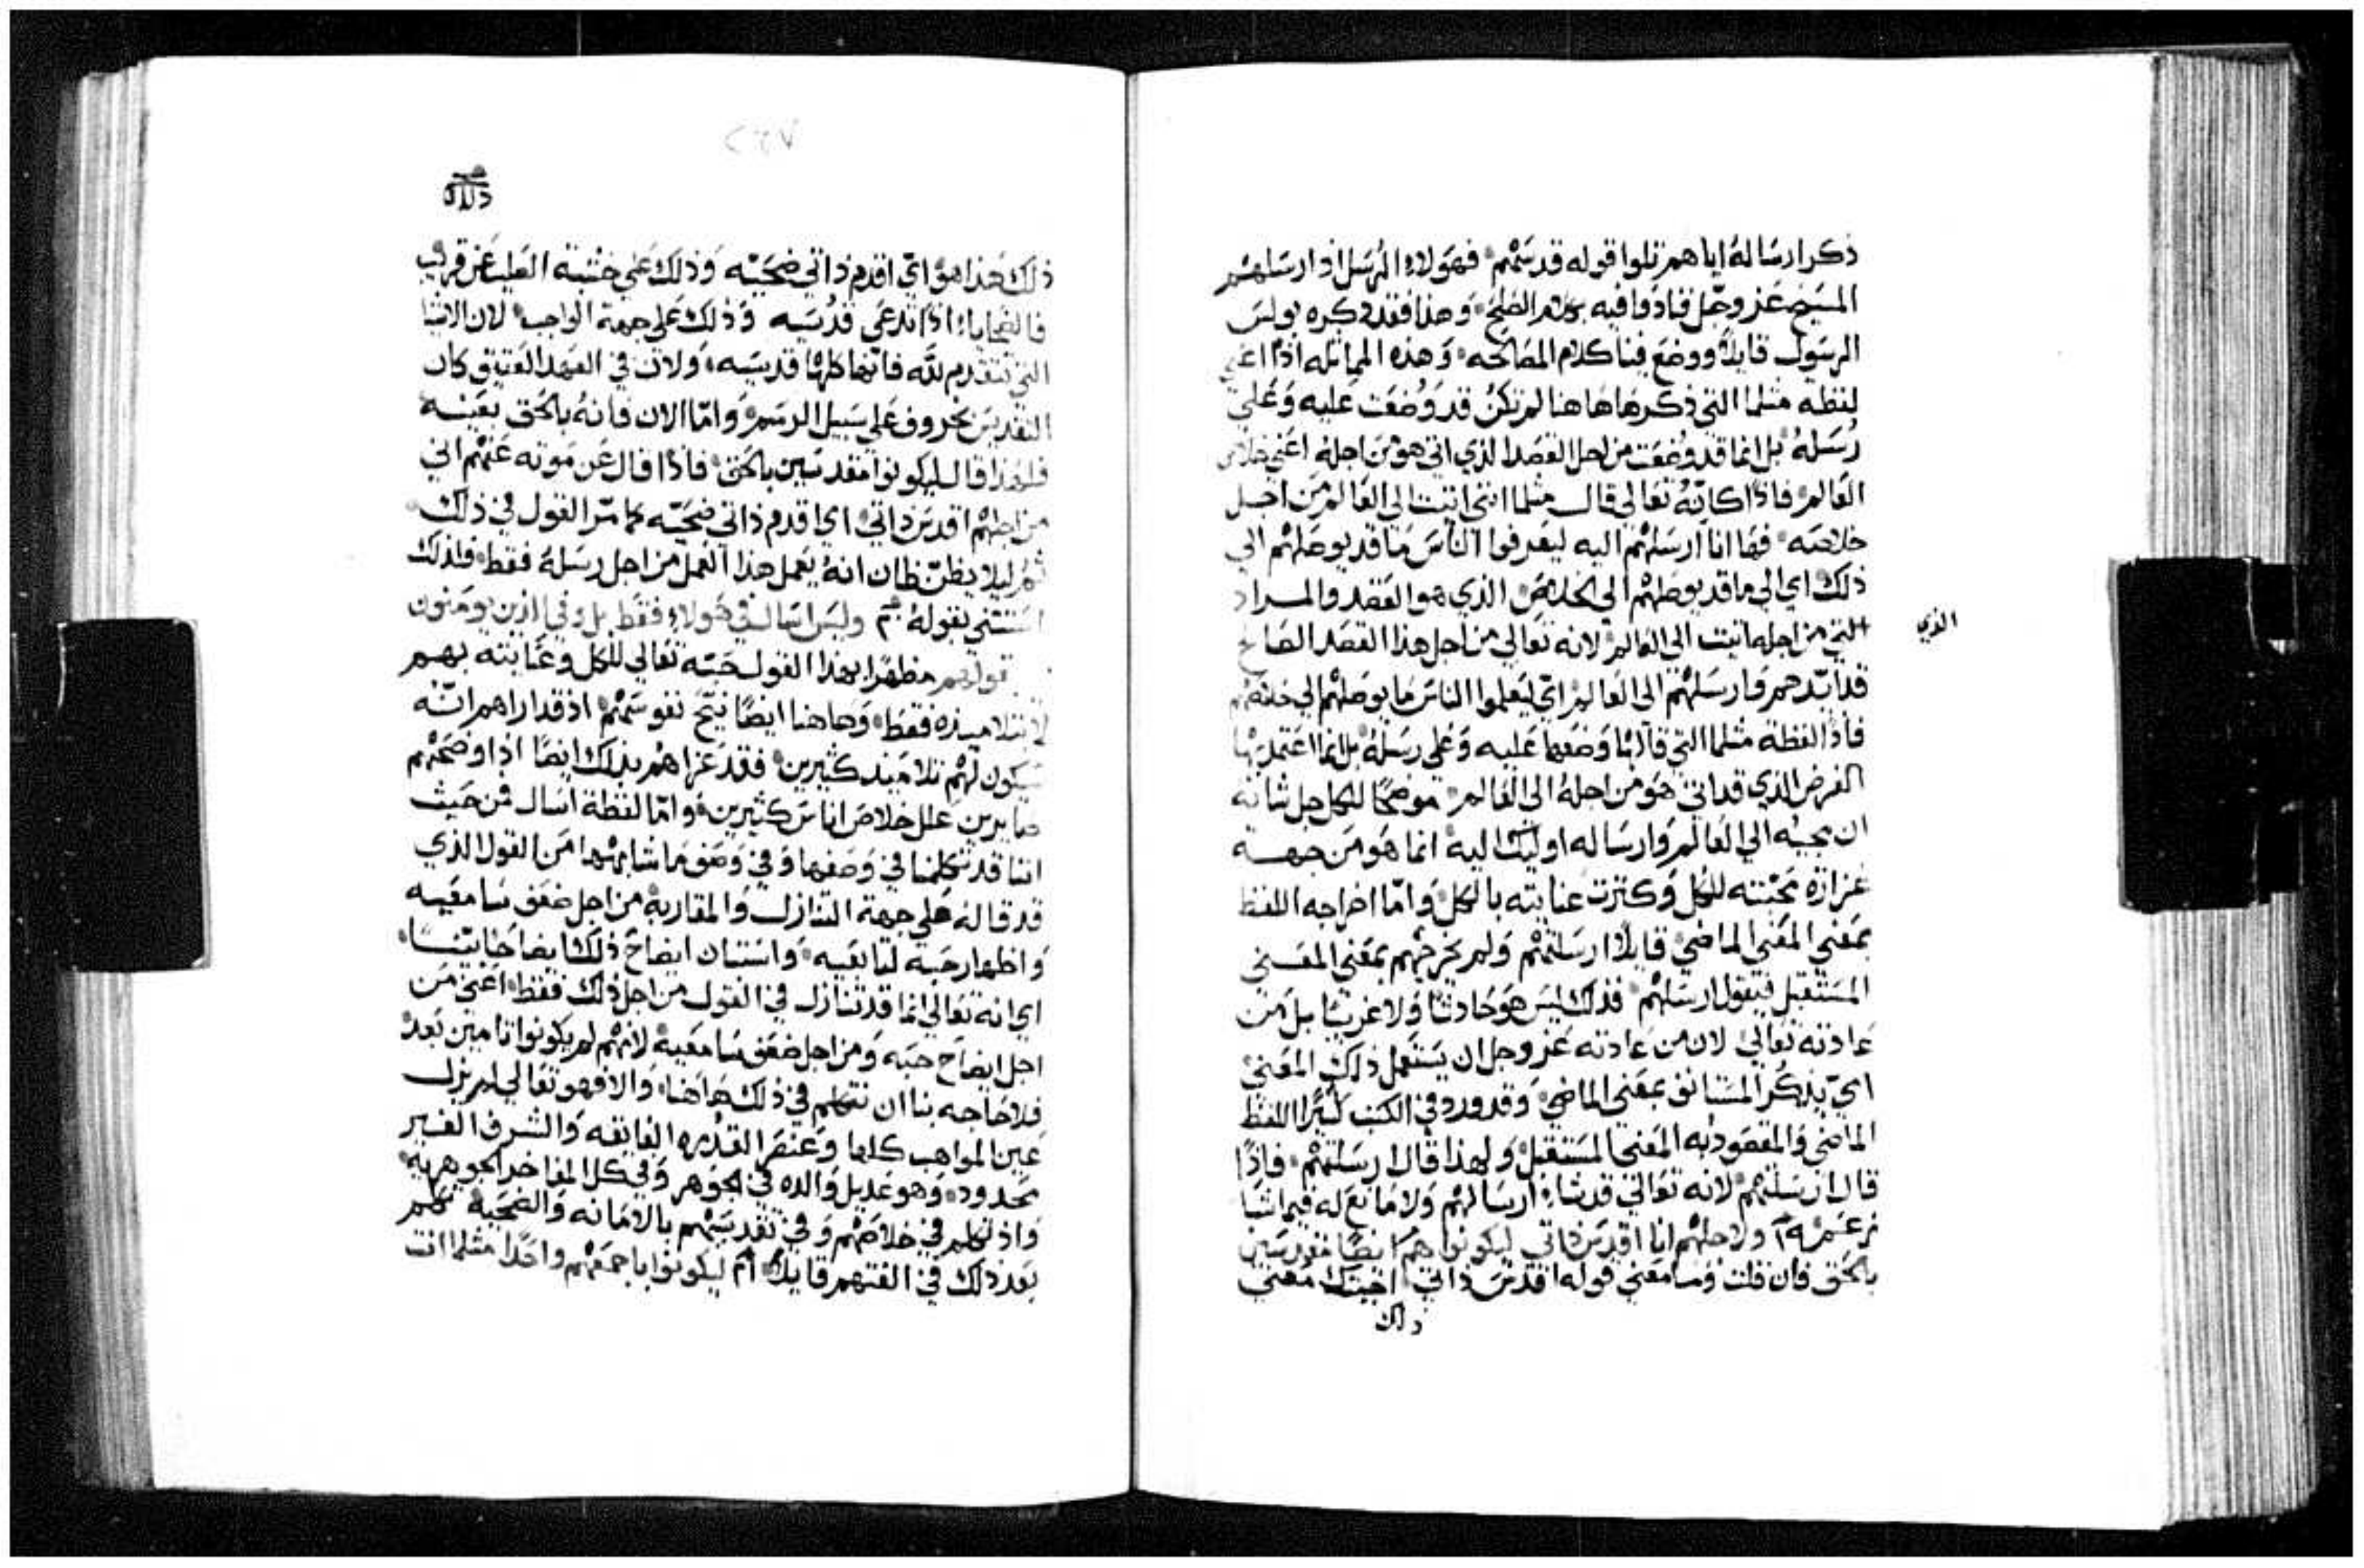 ذكر ارساله اياهم تلوا قوله قد ستهم فهولاء الرسل اذ ارسلهم
المسيح عز وجل فنادوا فيه بكلام الصلح وهذا فقد ذكره بولس
الرسول قايلاً ووضع فينا كلام المصالحه وهذه المماثله اذًا اعني
لفظة مثلما التي ذكرها هاهنا لم تكن قد وضعت عليه وعلي
رسله بل انما قد وضعت من اجل القصد الذي اتي هو من اجله اعني خلاص
العالم فاذًا كانه تعالي قال مثلما انني اتيت الي العالم من اجل
خلاصه فها انا ارسلتهم اليه ليعرفوا الناس ما قد يوصلهم الي
ذلك اي الي ما قد يوصلهم الي الخلاص الذي هو القصد والمراد
التي من اجله اتيت الي العالم لانه تعالي من اجل هذا القصد الصالح
الذي
قد ايدهم وارسلهم الي العالم اي ليعلموا الناس ما يوصلهم الي خلاصهم
فاذًا لفظة مثلما التي قالها وضعها عليه وعلي رسله بل انما اعتمد بها
الغرض الذي قد اتي هو من اجله الي العالم موضحًا للكل جل شانه
ان مجيه الي العالم وارساله اوليك اليه انما هو من جهة
غزارة محبته للكل وكثرت عنايته بالكل واما اخراجه اللفظ
بمعني المعني الماضي قايلاً ارسلتهم ولم يخرجهم بمعني المعني
المستقبل فيقول ارسلهم فذلك ليس هو حادثًا ولا غريبًا بل من
عادته تعالي لان من عادته عز وجل ان يستعمل ذلك المعني
اي يذكر المستانف بمعني الماضي وقد ورد في الكتب كثيرًا اللفظ
الماضي والمقصود به المعني المستقبل ولهذا قال ارسلتهم فاذًا
قال ارسلتهم لانه تعالي قد شاء ارسالهم ولا مانع له فيما شا
ولاجلهم انا اقدس ذاتي ليكونوا هم ايضًا مقدسين
بالحق فان قلت وما معني قوله اقدس ذاتي اجبتك معني
ذلك
٢٦٧
ذلك هذا هو اي اقدم ذاتي ضحيه وذلك علي خشبة الصليب عن قريب
فالضحايا اذًا تدعي قدسيه وذلك علي جهة الواجب لان الاشيا
التي تتقدم لله فانها كلها قدسيه ولان في العهد العتيق كان
التقديس بخروف علي سبيل الرسم واما الان فانه بالحق بعينه
فلهذا قال ليكونوا مقدسين بالحق فاذًا قال عن موته عنهم اني
من اجلهم اقدس ذاتي اي اقدم ذاتي ضحيه كما مر القول في ذلك
ثم ليلا يظن ظان انه يعمل هذا العمل من اجل رسله فقط فلذلك
استثني بقوله وليس اسال في هولاء فقط بل وفي الذين يومنون
بقولهم مظهرًا بهذا القول حبه تعالي للكل وعنايته بهم
لا بتلاميذه فقط وهاهنا ايضًا نيح نفوسهم اذ قد اراهم انه
سيكون لهم تلاميذ كثيرين فقد عزاهم بذلك ايضًا اذ اوضحهم
صايرين علل خلاص اناس كثيرين واما لفظة اسال فمن حيث
اننا قد تكلمنا في وصفها وفي وصف ما شابهها من القول الذي
قد قاله علي جهة التنازل والمقاربة من اجل ضعف سامعيه
واظهار حبه لتابعيه واستبان ايضاح ذلك ايضاحًا بينًا
اي انه تعالي انما قد تنازل في القول من اجل ذلك فقط اعني من
اجل ايضاح حبه ومن اجل ضعف سامعيه لانهم لم يكونوا تامين بعد
فلا حاجه بنا ان نتكلم في ذلك هاهنا والا فهو تعالي لم يزل
عين المواهب كلها وعنصر القدره الفايقه والشرف الغير
محدود وهو عديل والده في الجوهر وفي كل المفاخر الجوهريه
واذ تكلم في خلاصهم وفي تقديسهم بالامانه والضحية تكلم
بعد ذلك في الفتهم قايلاً ليكونوا باجمعهم واحدًا مثلما انت